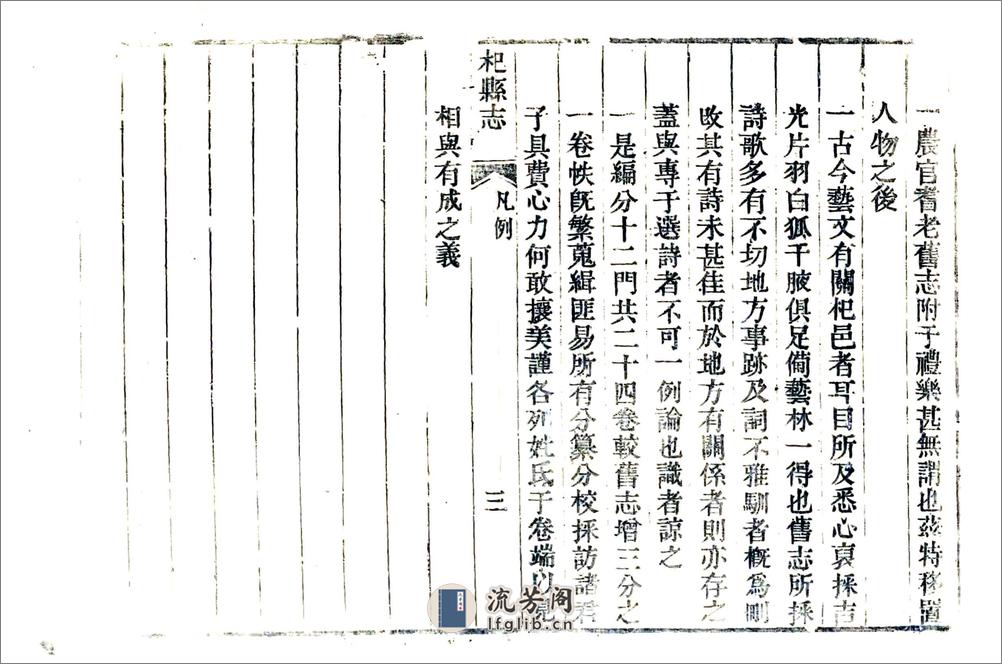 一農官耆老舊志附于禮樂甚無謂也茲特移置
人物之後
一古今藝文有關杞邑者耳目所及悉心裒採吉
光片羽白狐千腋俱足備藝林一得也舊志所採
詩歌多有不切地方事跡及詞不雅馴者概為刪
改其有詩未甚佳而於地方有關係者則亦存之
蓋與專于選詩者不可一例論也識者諒之
一是編分十二門共二十四卷較舊志增三分之
一卷帙旣繁蒐緝匪易所有分纂分校採訪諸君
子具費心力何敢攘美謹各列姓氏于卷端以見
杞縣志
凡例
三
相與有成之義
流芳阁
lfglib.cn